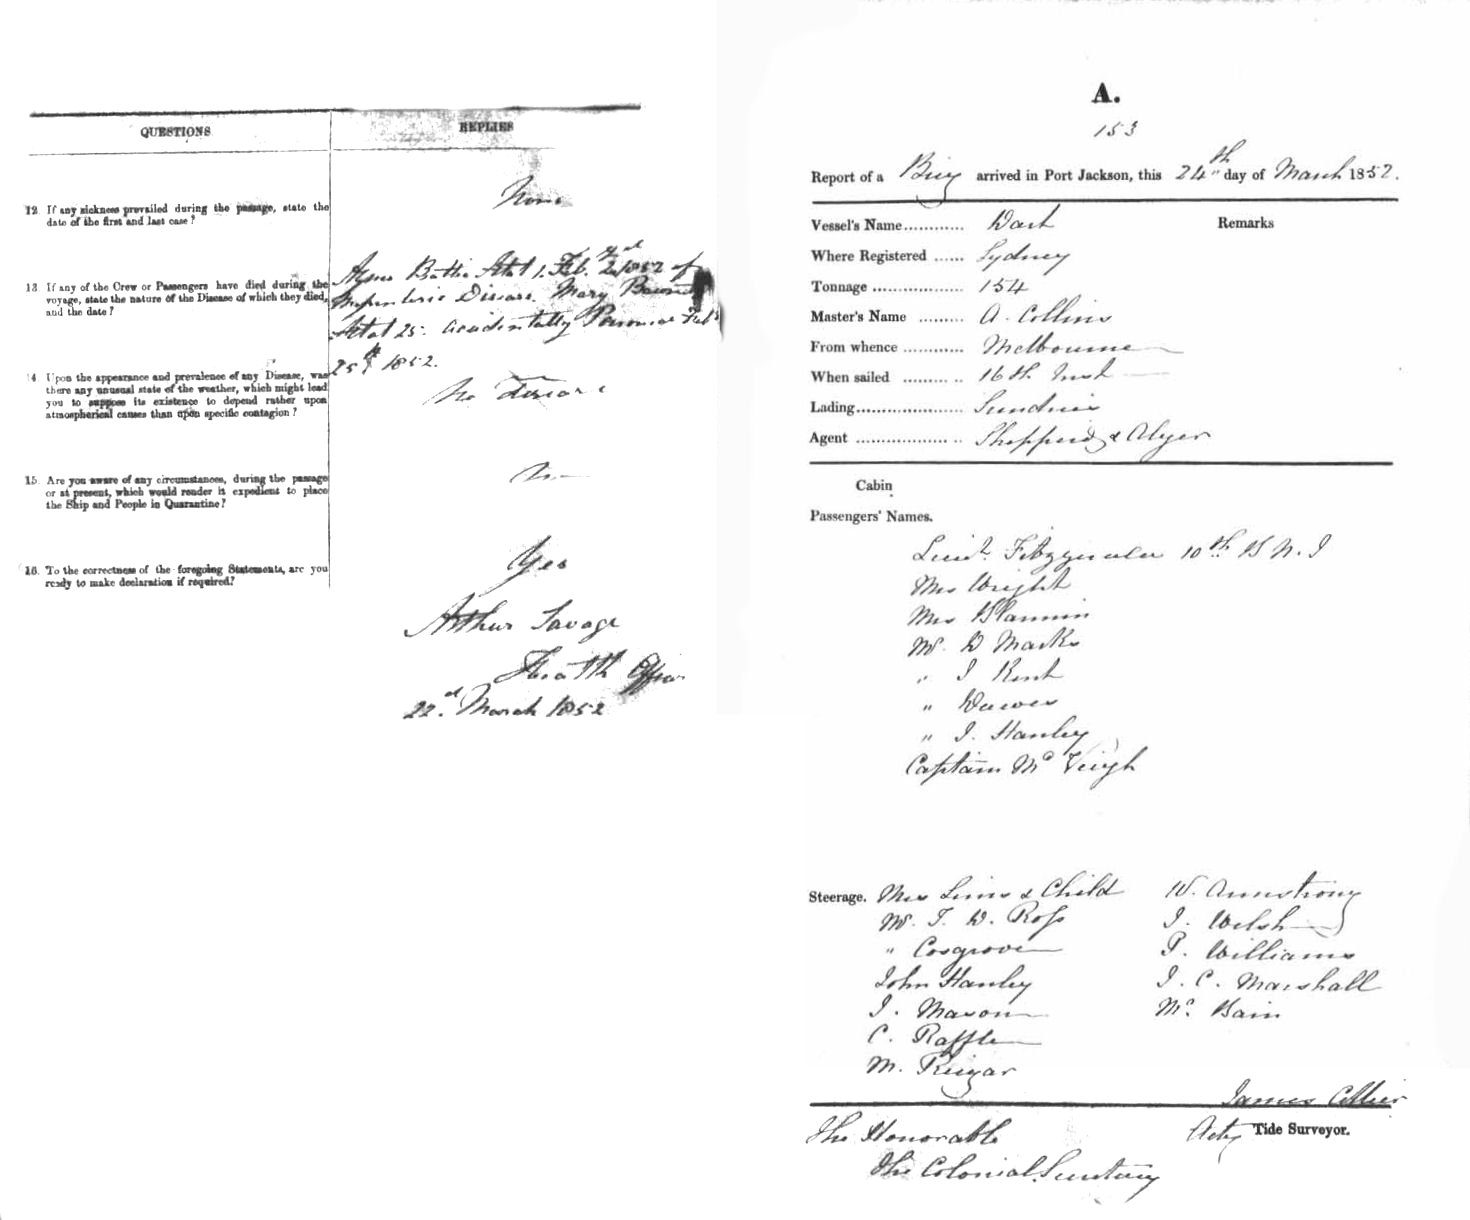 QUESTIONS
REPLIES
12. If any sickness prevailed during the passage, state the
date of the first and last case?
None
13. If any of the Crew or Passengers have died during the
voyage, state the nature of the Disease of which they died,
and the date?
Agnes Battie Ætat 1. Feb. 2nd 1852 of
Disease. Mary
Ætat 25. accidentally Poisoned Feb
25th 1852.
14. Upon the appearance and prevalence of any Disease, was
there any unusual state of the weather, which might lead
you to suppose its existence to depend rather upon
atmospherical causes than upon specific contagion?
No disease
15. Are you aware of any circumstances, during the passage
or at present, which would render it expedient to place
the Ship and People in Quarantine?
No
16. To the correctness of the foregoing Statements, are you
ready to make declaration if required?
Yes
Arthur Savage
Health Officer
22nd March 1852
A.
153
Report of a Brig arrived in Port Jackson, this 24th day of March 1852.
Vessel's Name............ Dart
Remarks
Where Registered ...... Sydney
Tonnage .................. 154
Master's Name ......... A. Collins
From whence ............ Melbourne
When sailed ......... .. 16th Inst
Lading..................... Sundries
Agent .................. .. Shepperd & Alger
Cabin
Passengers' Names.
Lieut. 10th B N. I
Mrs Wright
Mrs Blannin
Mr. D Marks
" J Kent
" Dawes
" J. Hanley
Captain McVeigh
Steerage. Mrs Sims & Child
Mr. T. W. Ross
" Cosgrove
John Hanley
J. Mason
C. Raffle
M.
W. Armstrong
J. Welsh
P. Williams
J. C. Marshall
Mc Bain
James Collier
Actg Tide Surveyor.
The Honorable
The Colonial Secretary